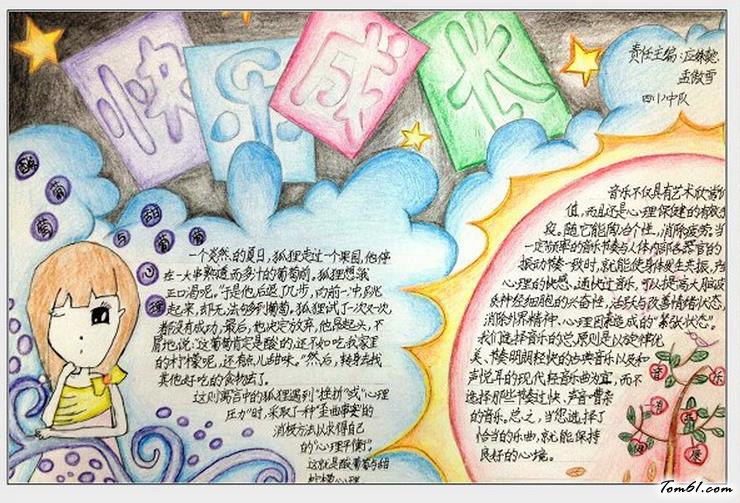 快乐成长
责任主编:应姝懿
孟傲雪
四(1)中队
酸葡萄与甜柠檬心理
一个炎热的夏日,狐狸走过一个果园,他停
在一大串熟透而多汁的葡萄前。狐狸想:“我
正口渴呢。”于是他后退了几步,向前一冲,跳
起来,却无法够到葡萄。狐狸试了一次又一次,
都没有成功。最后,他决定放弃,他昂起头,不
屑地说:“这葡萄肯定是酸的,还不如吃我家里
的柠檬呢,还有点儿甜味。”然后,转身去找
其他好吃的食物去了。
这则寓言中的狐狸遇到“挫折”或“心理
压力”时,采取了一种“歪曲事实”的
消极方法以求得自己
的“心理平衡”。
这就是酸葡萄与甜
柠檬心理
音乐不仅具有艺术欣赏价
值,而且还是心理保健的有效手
段。随它能陶冶个性,消除疲劳;当
一定频率的音乐节奏与人体内部各器官的
振动节奏一致时,就能使身体发生共振,产
心理的快感。通快过音乐,可以提高大脑皮
及神经细胞的兴奋性,活跃与改善情绪状态,
消除外界精神、心理因素造成的“紧张状态”。
我们选择音乐的总原则是以旋律优
美、节奏明朗轻快的古典音乐以及和
声悦耳的现代轻音乐曲为宜,而不
选择那些节奏过快、声音嘈杂
的音乐。总之,当您选择了
恰当的乐曲,就能保持
良好的心境。
Tom61.com